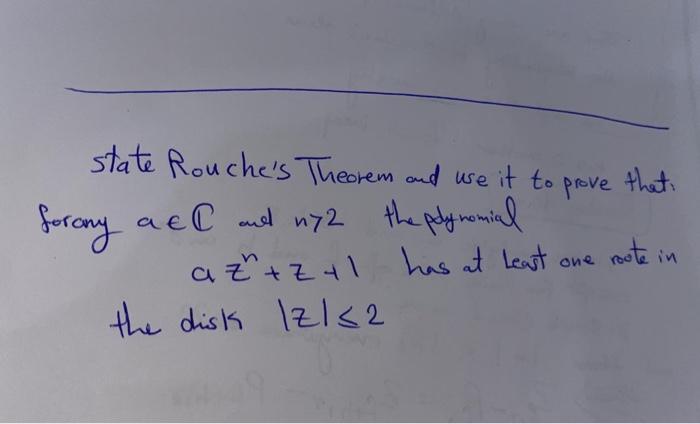 state Rouche's Theorem and use it to prove that:
for any a ∈ ℂ and n>2 the polynomial
a zⁿ + z + 1 has at least one roote in
the disk |z| ≤ 2